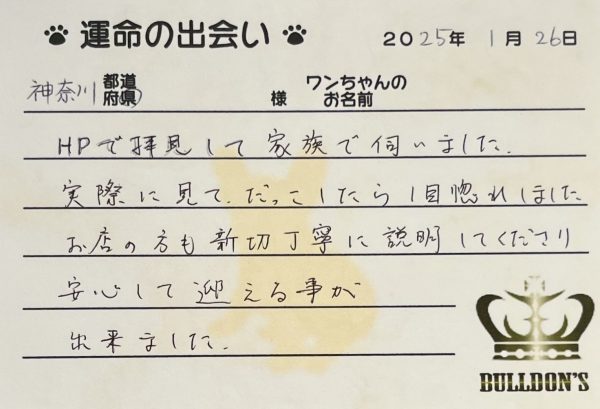 運命の出会い 2025年 1月 26日
神奈川 都道府県 様 ワンちゃんのお名前
HPで拝見して家族で伺いました.
実際に見て、だっこしたら1目惚れしました
お店の方も新切丁寧に説明してくださり
安心して迎える事が
出来ました.
BULLDON'S